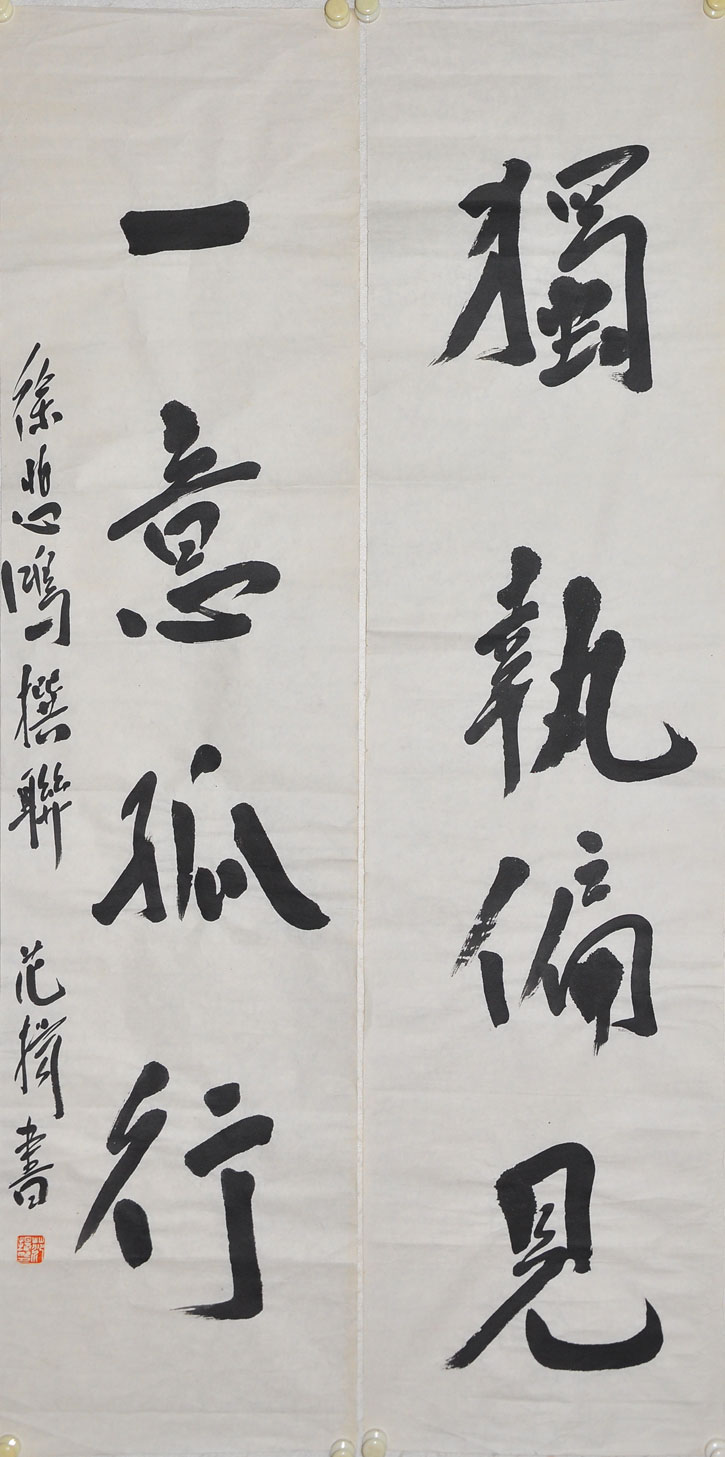 獨執偏見
一意孤行
徐悲鴻撰聯 范揚書